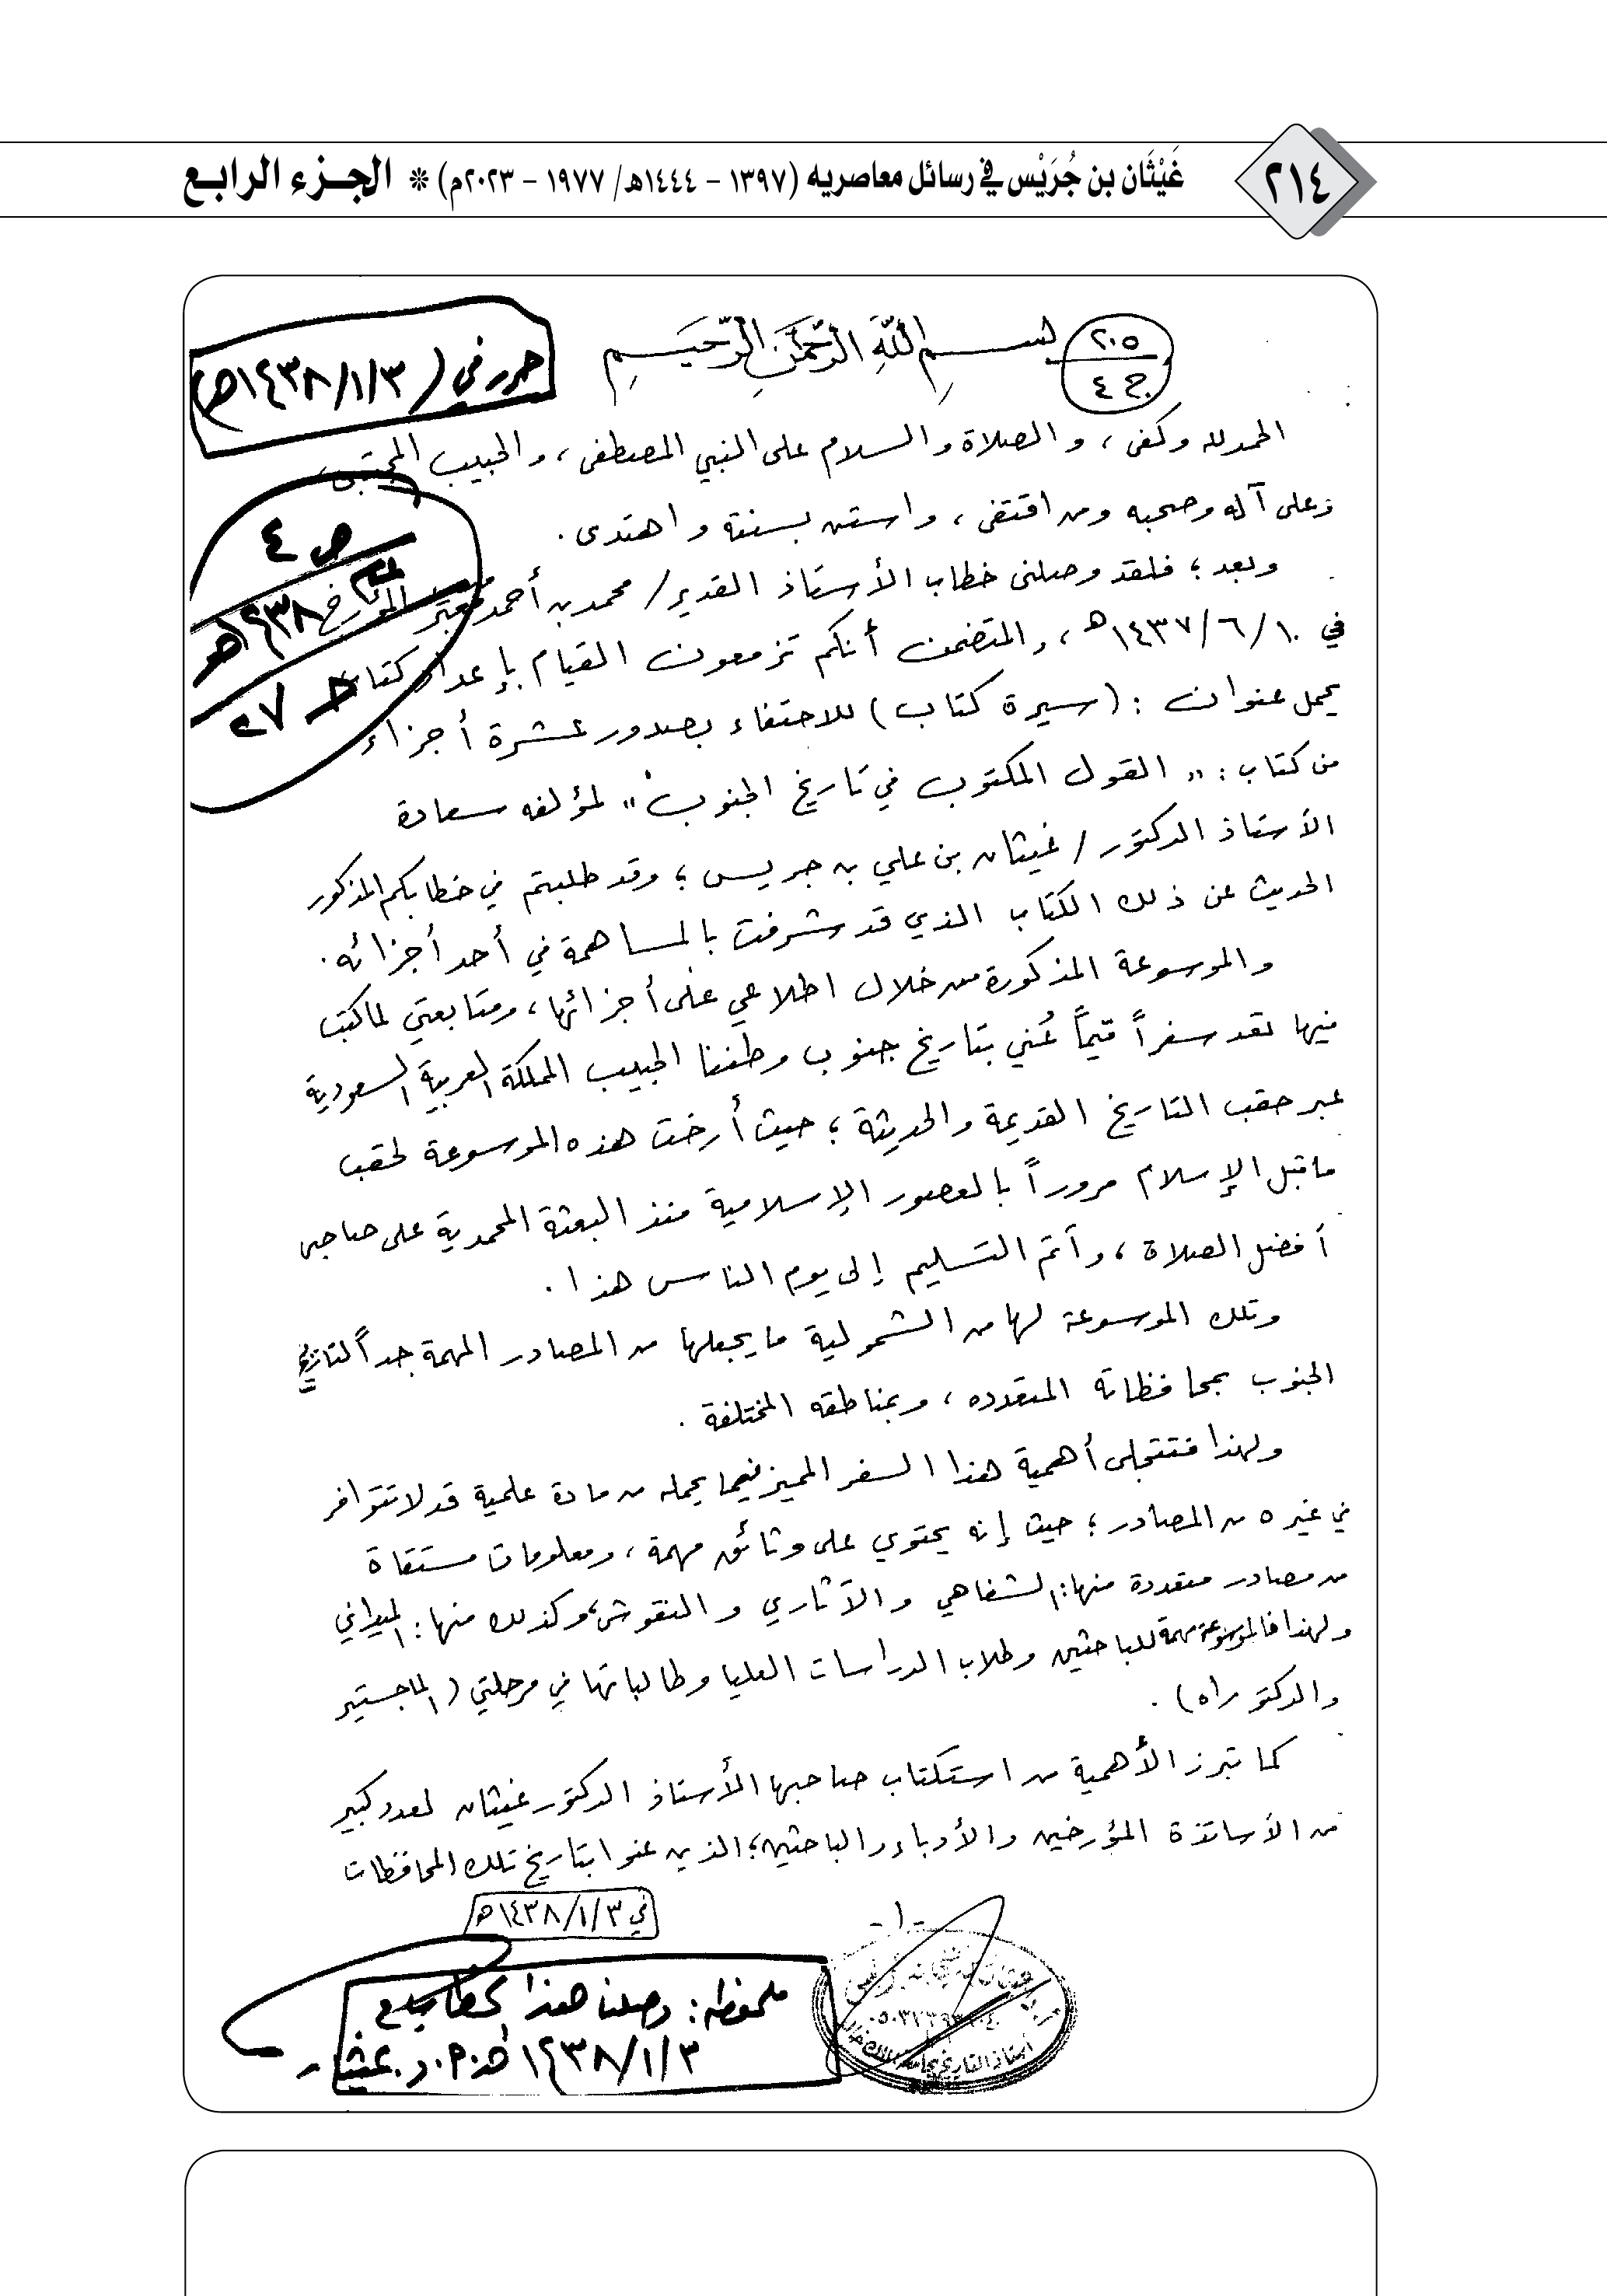 ٢١٤
غَيْثَان بن جُرَيْس في رسائل معاصريه (١٣٩٧ - ١٤٤٤هـ/ ١٩٧٧ - ٢٠٢٣م) * الجـزء الرابـع
٢٠٥
ج ٤
بسم اللَّهِ الرَّحْمَنِ الرَّحِيمِ
حرر في (١٤٣٨/١/٣هـ)
الحمد لله وكفى ، والصلاة والسلام على النبي المصطفى ، والحبيب المجتبى ،
وعلى آله وصحبه ومن اقتفى ، واستن بسنته واهتدى .
ص ٤
١٤٣٨هـ
حـ ٢٧
وبعد ؛ فلقد وصلني خطاب الأستاذ القدير / محمد بن أحمد معبر المؤرخ
في ١٤٣٧/٦/١٠هـ ، والمتضمن أنكم تزمعون القيام بإعداد كتاب
يحمل عنوان : (سيرة كتاب) للاحتفاء بصدور عشرة أجزاء
من كتاب : " القول المكتوب في تاريخ الجنوب " لمؤلفه سعادة
الأستاذ الدكتور / غيثان بن علي بن جريس ؛ وقد طلبتم في خطابكم المذكور
الحديث عن ذلك الكتاب الذي قد شرفت بالمساهمة في أحد أجزائه .
والموسوعة المذكورة من خلال اطلاعي على أجزائها ، ومتابعتي لما كتب
فيها تعد سفراً قيّماً عُني بتاريخ جنوب وطننا الحبيب المملكة العربية السعودية
عبر حقب التاريخ القديمة والحديثة ؛ حيث أرخت هذه الموسوعة لحقب
ما قبل الإسلام مروراً بالعصور الإسلامية منذ البعثة المحمدية على صاحبها
أفضل الصلاة ، وأتم التسليم إلى يوم الناس هذا .
وتلك الموسوعة لها من الشمولية ما يجعلها من المصادر المهمة جداً لتاريخ
الجنوب بمحافظاته المتعدده ، وبمناطقه المختلفة .
ولهذا فتتجلى أهمية هذا السفر المميز فيما يحمله من مادة علمية قد لا تتوافر
في غيره من المصادر ؛ حيث إنه يحتوي على وثائق مهمة ، ومعلومات مستقاة
من مصادر متعددة منها : الشفاهي والآثاري والنقوش ، وكذلك منها : الميداني
ولهذا فالموسوعة مهمة للباحثين وطلاب الدراسات العليا وطالباتها في مرحلتي (الماجستير
والدكتوراه) .
كما تبرز الأهمية من استكتاب صاحبها الأستاذ الدكتور غيثان لعدد كبير
من الأساتذة المؤرخين والأدباء والباحثين ؛ الذين عنوا بتاريخ تلك المحافظات
-١-
في ١٤٣٨/١/٣هـ
ملحوظه : وصلنا هذا
١٤٣٨/١/٣هـ . أ . د . غيثان